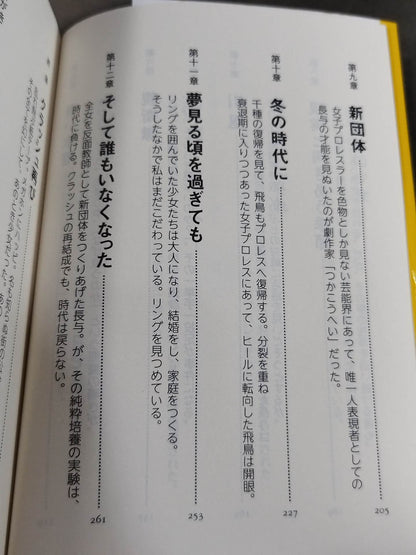 第九章
新団体
205
女子プロレスラーを色物としか見ない芸能界にあって、唯一人表現者としての
長与の才能を見ぬいたのが劇作家「つかこうへい」だった。
第十章
冬の時代に
227
千種の復帰を見て、飛鳥もプロレスへ復帰する。分裂を重ね
衰退期に入りつつあった女子プロレスにあって、ヒールに転向した飛鳥は開眼。
第十一章
夢見る頃を過ぎても
253
リングを囲んでいた少女たちは大人になり、結婚をし、家庭をつくる。
そうしたなかで私はまだこだわっている。リングを見つめている。
第十二章
そして誰もいなくなった
261
全女を反面教師として新団体をつくりあげた長与。が、その純粋培養の実験は、
時代に負ける。クラッシュの再結成でも、時代は戻らない。